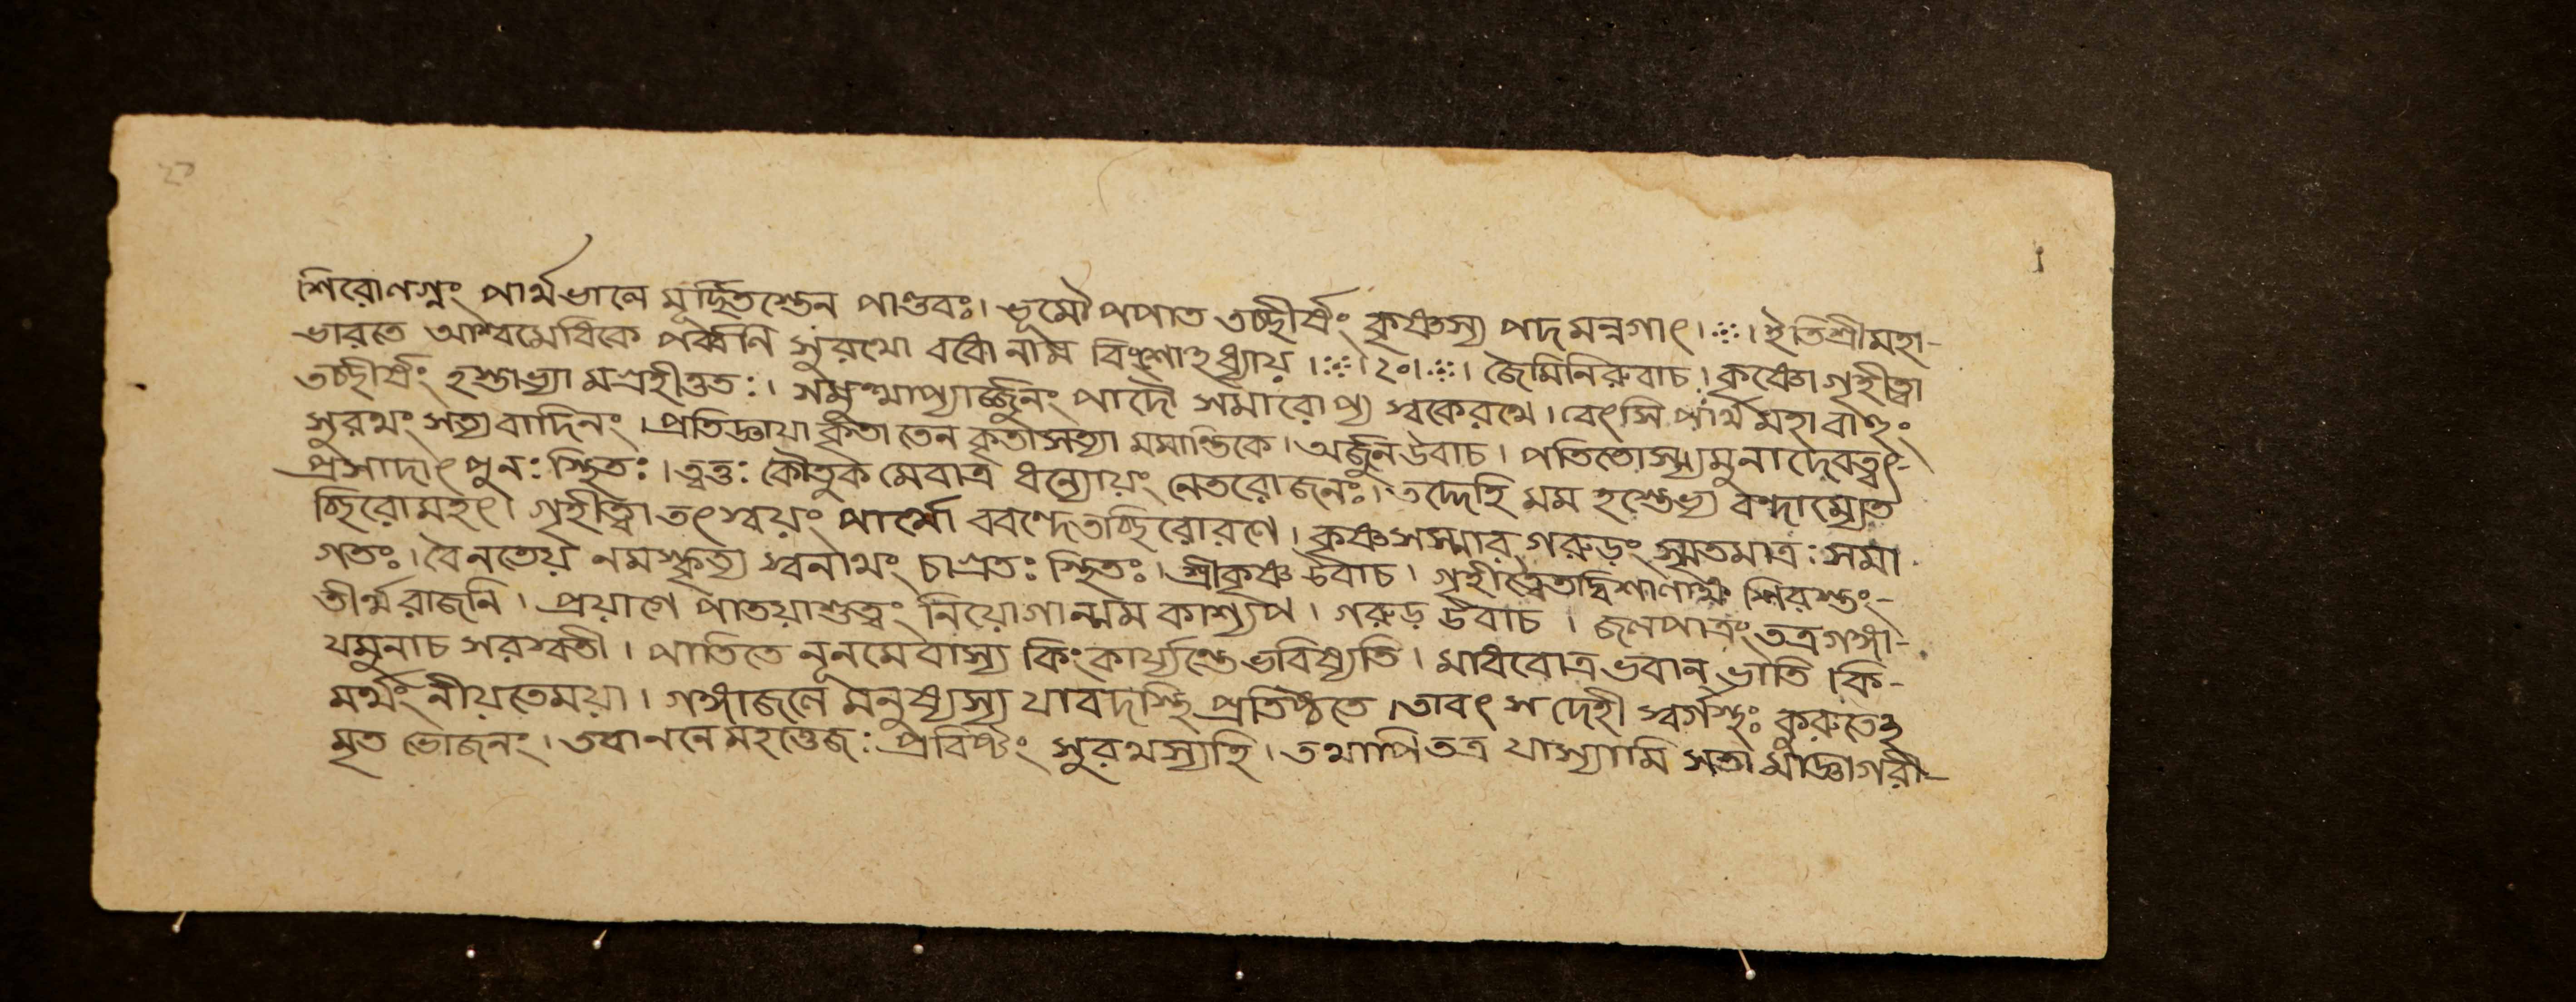 ২০
শিরোণগ্নং পার্থভালে মূর্চ্ছিতস্তেন পাণ্ডবঃ। ভূমৌ পপাত তচ্ছীর্ষং কৃষ্ণস্য পদমন্নগাৎ।ঃ।ইতিশ্রীমহা-
ভারতে আশ্বমেধিকে পর্ব্বনি সুরথো বধো নাম বিংশোঽধ্যায়।ঃ।২০।ঃ। জৈমিনিরুবাচ। কৃষ্ণো গৃহীত্বা
তচ্ছীর্ষং হস্তাভ্যা মগ্রহীত্ততঃ। সমুত্থাপ্যার্জ্জুনং পাদৌ সমারোপ্য স্বকেরথে। বেৎসি পার্থ মহাবাহুং
সুরথং সত্যবাদিনং। প্রতিজ্ঞায়া কৃতা তেন কৃতাসত্যা মমান্তিকে। অর্জুন উবাচ। পতিতোস্ম্যমুনাদেবত্বৎ-
প্রসাদাৎ পুনঃ স্থিতঃ। ত্বত্তঃ কৌতুক মেবাত্র ধন্যোয়ং নেতরোজনঃ। তদ্দেহি মম হস্তেভ্য বন্দাম্যেত
চ্ছিরোমহৎ। গৃহীত্বা তৎ স্বয়ং পার্থো ববন্দে তচ্ছিরোরণে। কৃষ্ণ সস্মার গরুড়ং স্মৃতমাত্রঃ সমা
গতঃ। বৈনতেয় নমস্কৃত্য স্বনাথং চাগ্রতঃ স্থিতঃ। শ্রীকৃষ্ণ উবাচ। গৃহীত্বৈতদ্বিশালাক্ষ শিরস্ত্বং-
তীর্থরাজনি। প্রয়াগে পাতয়াশুত্বং নিয়োগান্মম কাশ্যপ। গরুড় উবাচ। জলপাত্রং তত্রগঙ্গা-
যমুনাচ সরস্বতী। পাতিতে নূনমেবাস্য কিংকার্য্যন্তে ভবিষ্যতি। মাধবোত্র ভবান্ ভাতি কি-
মর্থং নীয়তেময়া। গঙ্গাজলে মনুষ্যস্য যাবদস্থি প্রতিষ্ঠতে। তাবৎ স দেহী স্বর্গস্থঃ কুরুতেঽ
মৃত ভোজনং। তবাননে মহত্তেজঃ প্রবিষ্টং সুরথস্যহি। তথাপি তত্র যাস্যামি সতা মাজ্ঞাগরী-